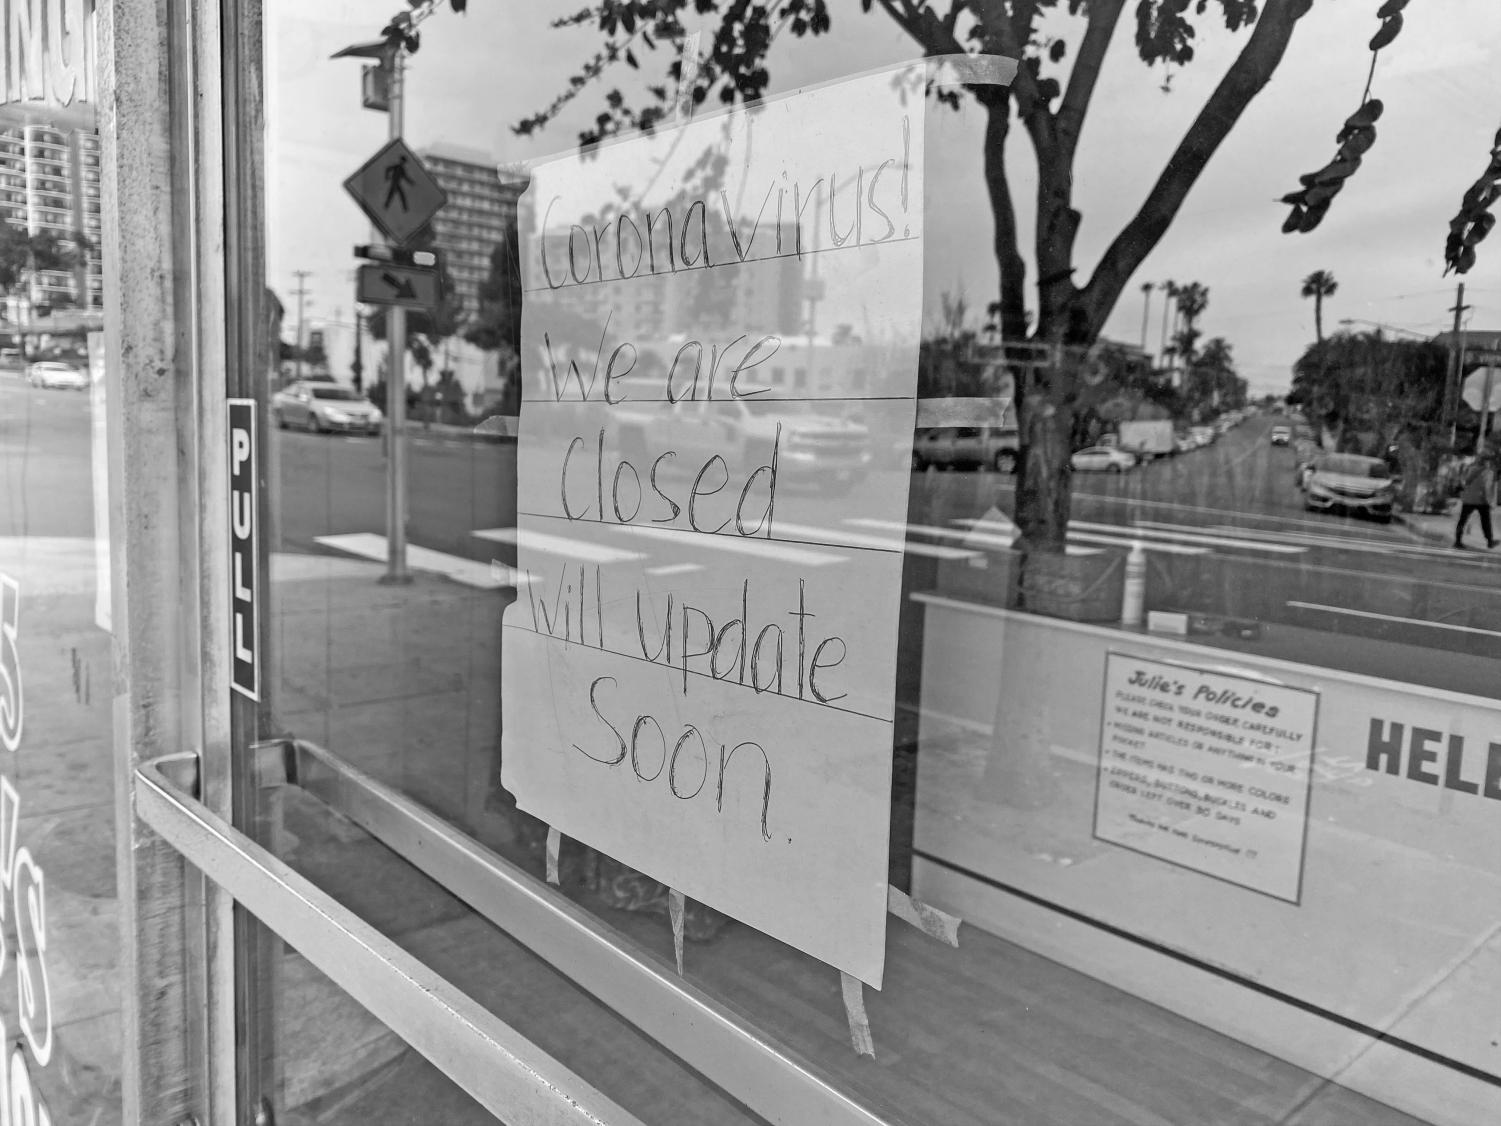 PULL
Coronavirus!
We are
Closed
Will update
Soon.
Julie's Policies
PLEASE CHECK YOUR ORDER CAREFULLY
WE ARE NOT RESPONSIBLE FOR:
• MISSING ARTICLES OR ANYTHING IN YOUR
POCKET
• THE ITEMS HAS TWO OR MORE COLORS
• ZIPPERS, BUTTONS, BUCKLES AND
ORDER LEFT OVER 30 DAYS
HELP